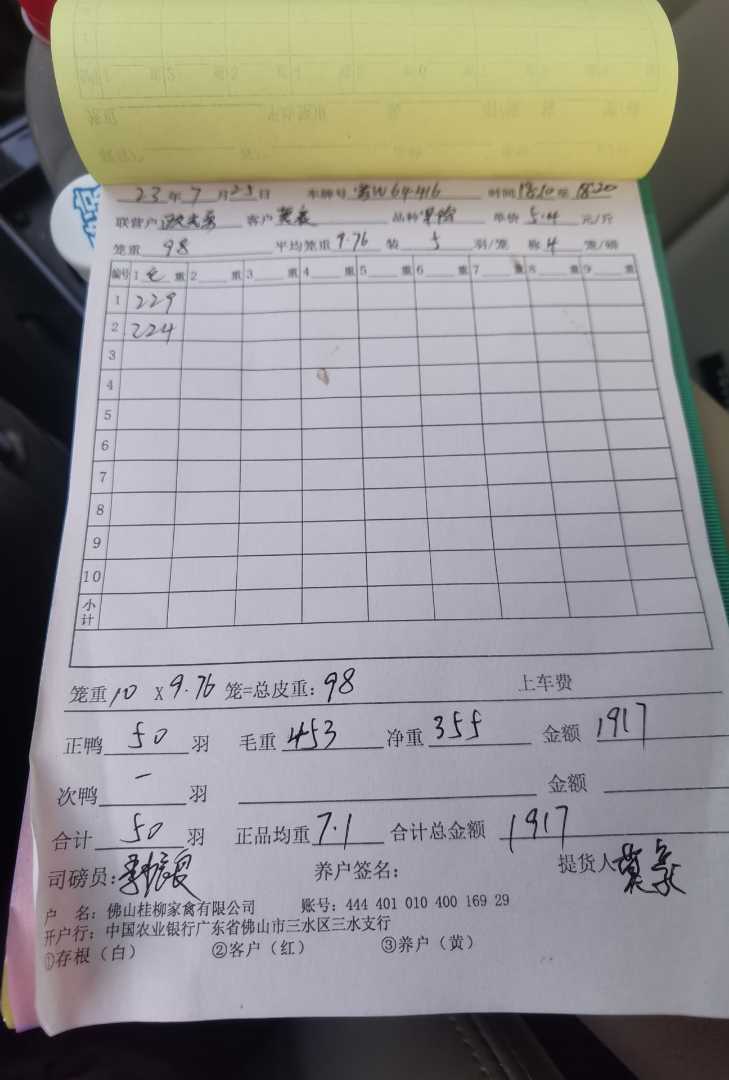 23年7月23日 车牌号 W64416 时间18:10至18:20
联营户 客户 品种 单价 5.4 元/斤
笼重 98 平均笼重 9.76 装 5 羽/笼 称 4 笼/磅
编号 1 毛 重 2 重 3 重 4 重 5 重 6 重 7 重 8 重 9 重
1 229
2 224
3
4
5
6
7
8
9
10
小计
笼重 10 X 9.76 笼=总皮重: 98 上车费
正鸭 50 羽 毛重 453 净重 355 金额 1917
次鸭 — 羽 金额
合计 50 羽 正品均重 7.1 合计总金额 1917
司磅员: 养户签名: 提货人
户 名: 佛山桂柳家禽有限公司 账号: 444 401 010 400 169 29
开户行: 中国农业银行广东省佛山市三水区三水支行
①存根(白) ②客户(红) ③养户(黄)